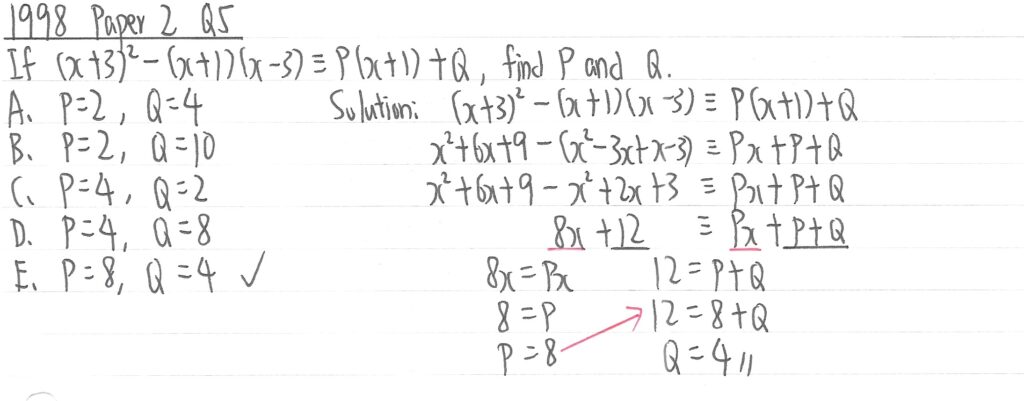 1998 Paper 2 Q5
If (x+3)² - (x+1)(x-3) ≡ P(x+1) + Q, find P and Q.
A. P=2, Q=4
B. P=2, Q=10
C. P=4, Q=2
D. P=4, Q=8
E. P=8, Q=4 ✓
Solution: (x+3)² - (x+1)(x-3) ≡ P(x+1) + Q
x²+6x+9 - (x²-3x+x-3) ≡ Px+P+Q
x²+6x+9 - x²+2x+3 ≡ Px+P+Q
8x+12 ≡ Px+P+Q
8x=Px 12=P+Q
8=P 12=8+Q
P=8 Q=4 //